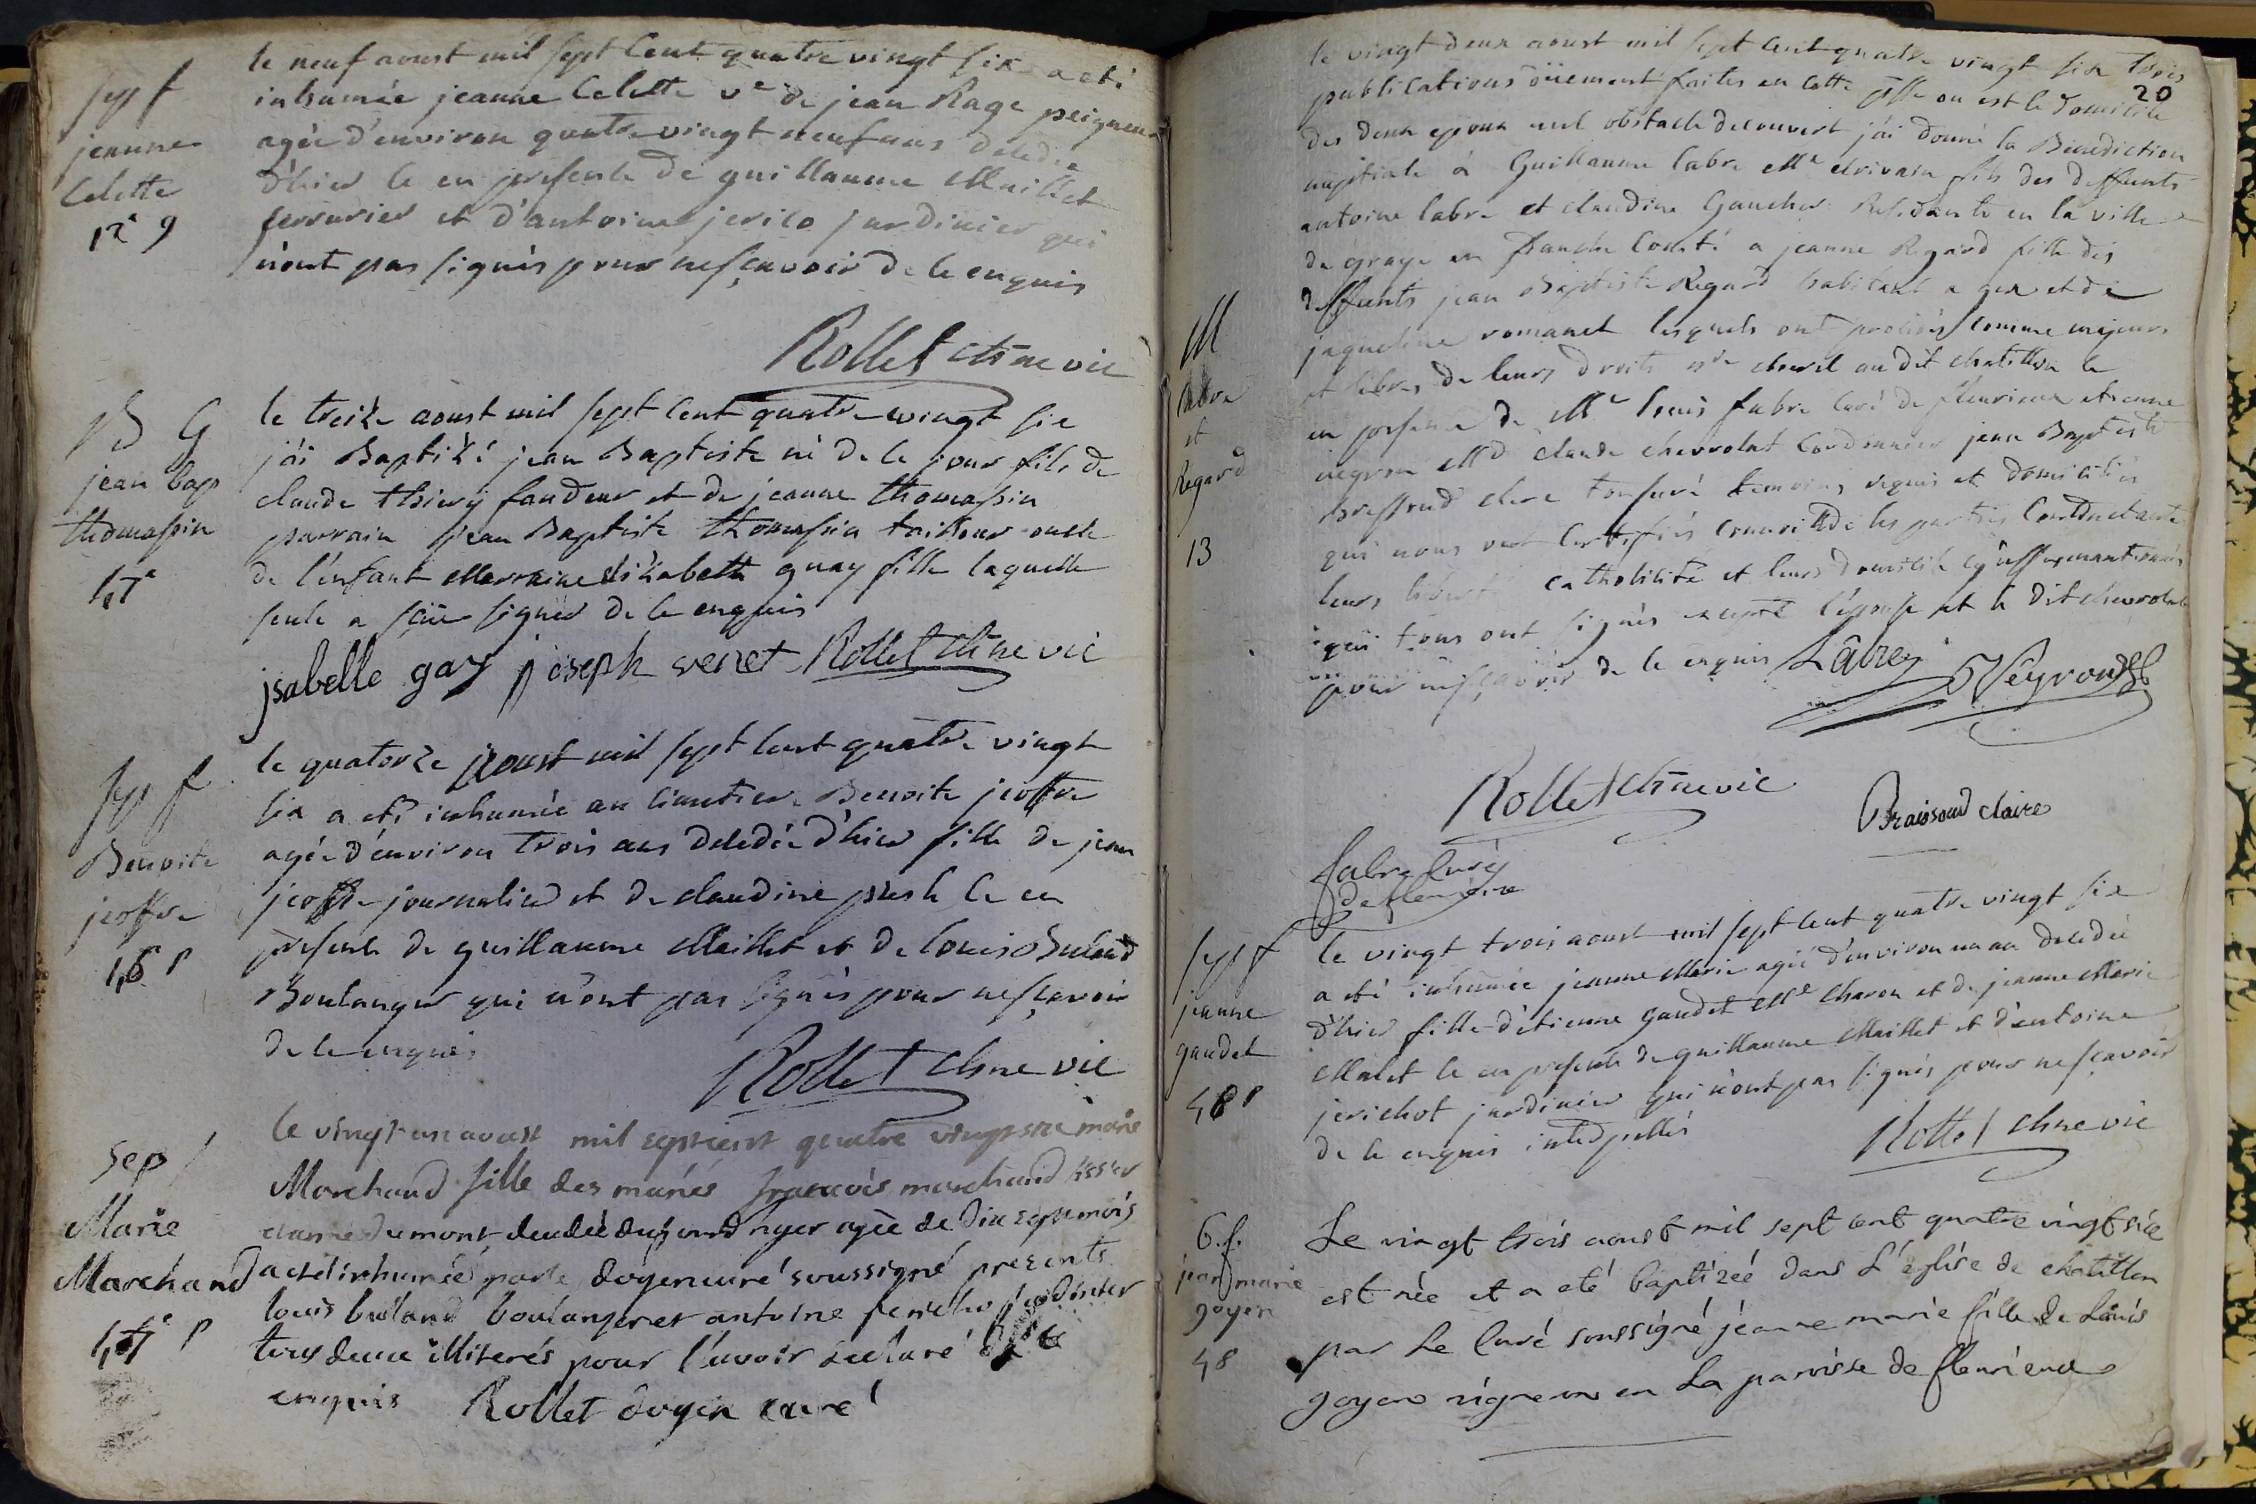 sep f
jeanne
Celette
le neuf aoust mil sept Cent quatre vingt six a eté
inhumée jeanne Celette ve de jean Rage peigneur
agée d'environ quatre vingt neuf ans deledée
d'hier le en presence de guillaume Maillet
serrurier et d'antoine jerico jardinier qui
n'ont pas signés pour ne sçavoir de ce enquis
Rollet chne vic
B G
jean bap
thomassin
le treize aoust mil sept Cent quatre vingt six
j'ai Baptizé jean Baptiste né de ce jour fils de
claude thiery faudeur et de jeanne thomassin
parrain jean Baptiste thomassin tailleur oncle
de l'enfant Marraine Elizabeth guay fille laquelle
seule a sçu signer de ce enquis
jsabelle gay joseph veret Rollet chne vic
sep f
Benoite
jeoffre
le quatorze aoust mil sept cent quatre vingt
six a eté inhumée au cimetier Benoite jeoffre
agée d'environ trois ans deledée d'hier fille de jean
jeoffre journalier et de claudine ce en
presence de guillaume Maillet et de Louis Buland
Boulanger qui n'ont pas signés pour ne sçavoir
de ce enquis
Rollet chne vic
sep
Marie
Marchand
le vingt un aoust mil sept cent quatre vingt six marie
Marchand fille des mariés francois marchand
dumont hyer agée de dix sept mois
a eté inhumée par le doyen curé soussigné presents
louis buland boulanger et antoine jericho jardinier
tous deux illiterés pour l'avoir declaré de ce
enquis Rollet doyen curé
20
M
labre
et
Regard
13
le vingt deux aoust mil sept cent quatre vingt six trois
publications düement faites en cette psse ou est le domicile
des deux epoux nul obstacle decouvert j'ai donné la Bénédiction
nuptiale à Guillaume labre Me ecrivain fils des deffunts
antoine labre et claudine Gaucher Residante en la ville
de graye en franche Comté a jeanne Regard fille des
deffunts jean Baptiste Regard habitant a gex et de
jaqueline romanet lesquels ont procédés comme majeurs
et libres de leurs droits au dit chatillon ce
en presence de Me louis fabre Curé de fleurieux etienne
veyron Md claude chevrolat Cordonnier jean Baptiste
Braissoud clerc tonsuré temoins requis et domiciliés
qui nous ont certifiés les parties Contractantes
leurs liberté catholicité et leurs domicile
qui tous ont signés excepté l'epouse et le dit chevrolat
pour ne sçavoir de ce enquis Labre Veyron
Rollet chne vic
Braissoud claire
fabre Curé
de fleurieux
sep f
jeanne
gaudet
le vingt trois aoust mil sept cent quatre vingt six
a eté inhumée jeanne Marie agée d'environ un an deledée
d'hier fille d'etienne gaudet Me Charon et de jeanne Marie
Malet ce en presence de guillaume Maillet et d'antoine
jerichot jardinier qui n'ont pas signés pour ne sçavoir
de ce enquis interpellés
Rollet chne vic
B.f.
jean marie
goyon
48
Le vingt trois aoust mil sept cent quatre vingt six
est née et a eté baptizéé dans L'église de chatillon
par Le Curé soussigné jéanne marie fille de Loüis
goyon vigneron en La paroisse de fleurieux